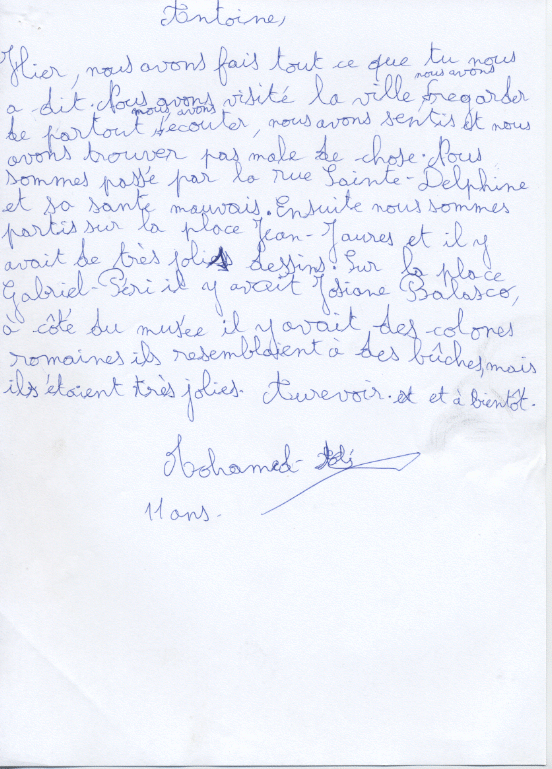 Antoine,
Hier, nous avons fais tout ce que tu nous
a dit. Nous avons visité la ville, nous avons regarder
de partout, nous avons écouter, nous avons sentis et nous
avons trouver pas male de chose. Nous
sommes passé par la rue Sainte-Delphine
et sa sante mauvais. Ensuite nous sommes
partis sur la place Jean-Jaures et il y
avait de très jolis dessins. Sur la place
Gabriel-Péri il y avait Josiane Balasco,
à côté du musée il y avait des colones
romaines ils resemblaient à des bûches, mais
ils étaient très jolies. Aurevoir. et à bientôt.
Mohamed-Ali
11 ans.